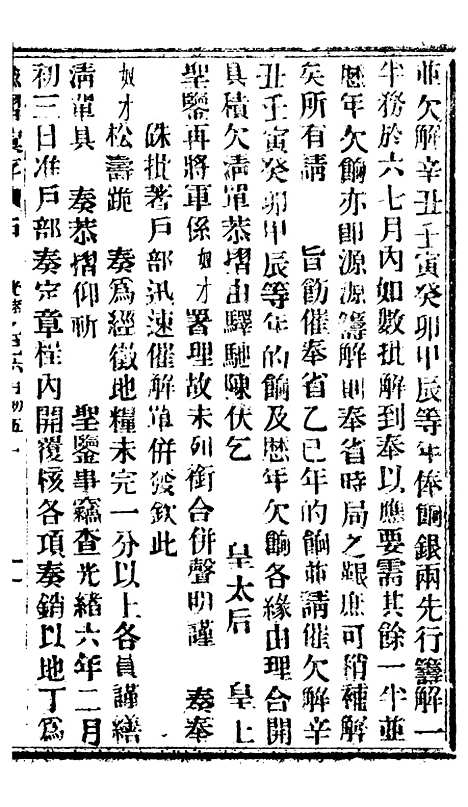 並欠解辛丑壬寅癸卯甲辰等年俸餉銀兩先行籌解一
半務於六七月內如數批解到奉以應要需其餘一半並
歷年欠餉亦卽源源籌解則奉省時局之艱庶可稍補解
矣所有請　旨飭催奉省乙巳年的餉並請催欠解辛
丑壬寅癸卯甲辰等年的餉及歷年欠餉各緣由理合開
具積欠淸單恭摺由驛馳陳伏乞　皇太后　皇上
聖鑒再將軍係奴才署理故未列銜合併聲明謹　奏奉
硃批著戶部迅速催解單併發欽此
奴才松壽跪　奏爲經徵地糧未完一分以上各員謹繕
淸單具　奏恭摺仰祈　聖鑒事竊查光緖六年二月
初三日准戶部奏定章程內開覆核各項奏銷以地丁爲